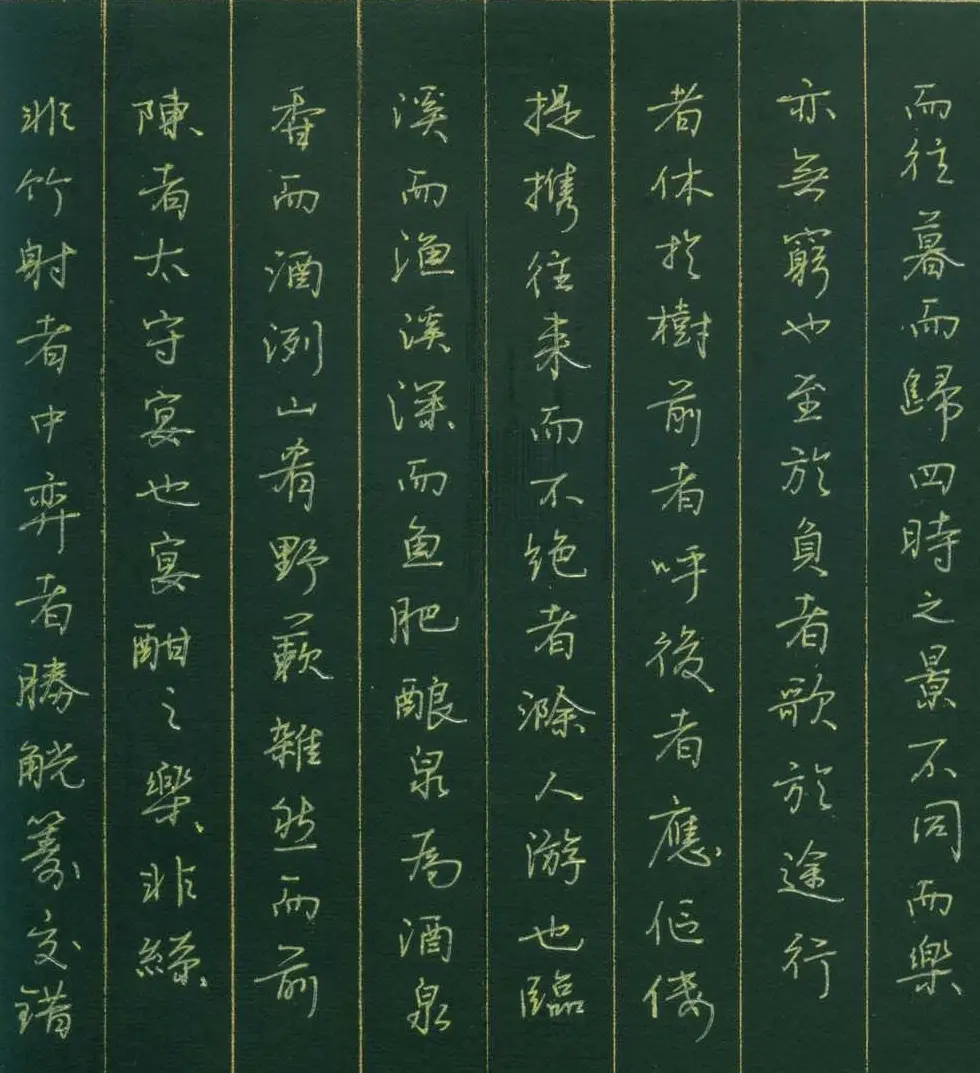 而往暮而歸四時之景不同而樂
亦無窮也至於負者歌於途行
者休於樹前者呼後者應傴僂
提攜往来而不绝者滁人游也臨
溪而渔溪深而魚肥酿泉為酒泉
香而酒洌山肴野蔌雜然而前
陳者太守宴也宴酣之樂非絲
非竹射者中弈者勝觥籌交錯